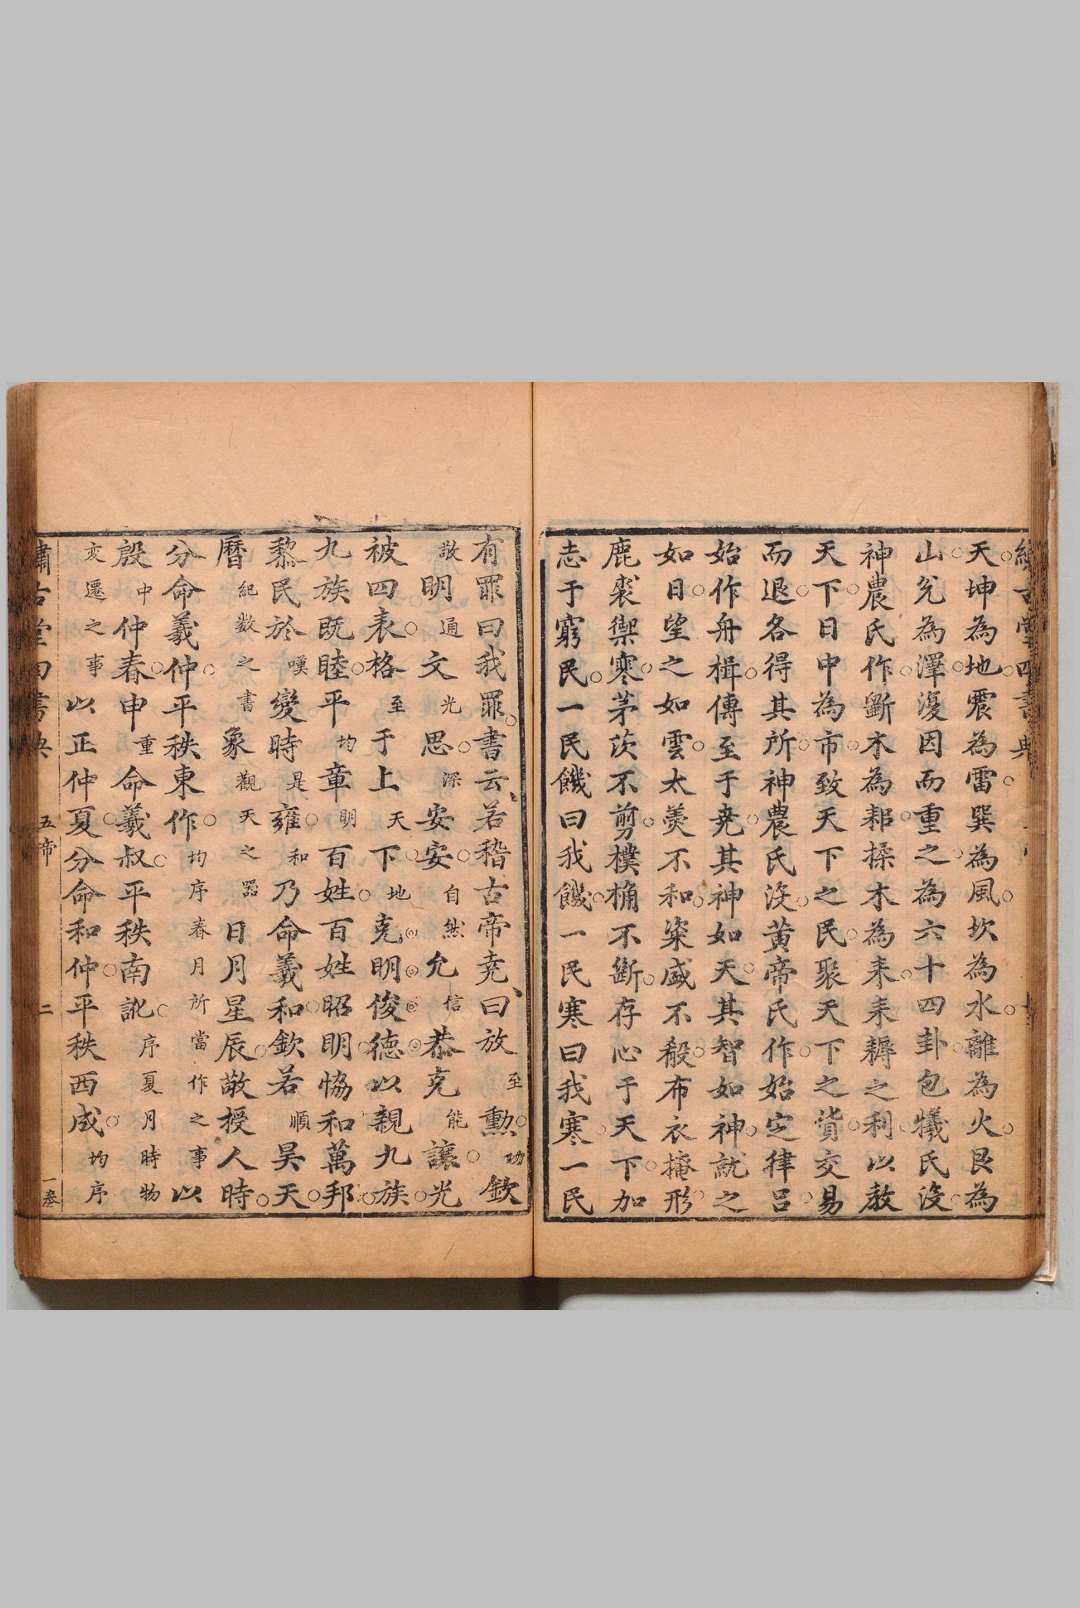 天坤為地震為雷巽為風坎為水離為火艮為
山兌為澤復因而重之為六十四卦包犧氏沒
神農氏作斷木為耜揉木為耒耒耨之利以教
天下日中為市致天下之民聚天下之貨交易
而退各得其所神農氏沒黃帝氏作始定律呂
始作舟楫傳至于堯其神如天其智如神就之
如日望之如雲太羹不和粢盛不毇布衣掩形
鹿裘禦寒茅茨不剪樸桷不斷存心于天下加
志于窮民一民饑曰我饑一民寒曰我寒一民
有罪曰我罪書云若稽古帝堯曰放至勳功欽
敬明通文光思深安安自然允信恭克能讓光
被四表格至于上天下地克明俊德以親九族
九族既睦平均章明百姓百姓昭明協和萬邦
黎民於嘆變時是雍和乃命羲和欽若順昊天
曆紀數之書象觀天之器日月星辰敬授人時
分命羲仲平秩東作均序春月所當作之事以
殷中仲春申重命羲叔平秩南訛序夏月時物
変遷之事以正仲夏分命和仲平秩西成均序
五帝
二
一卷